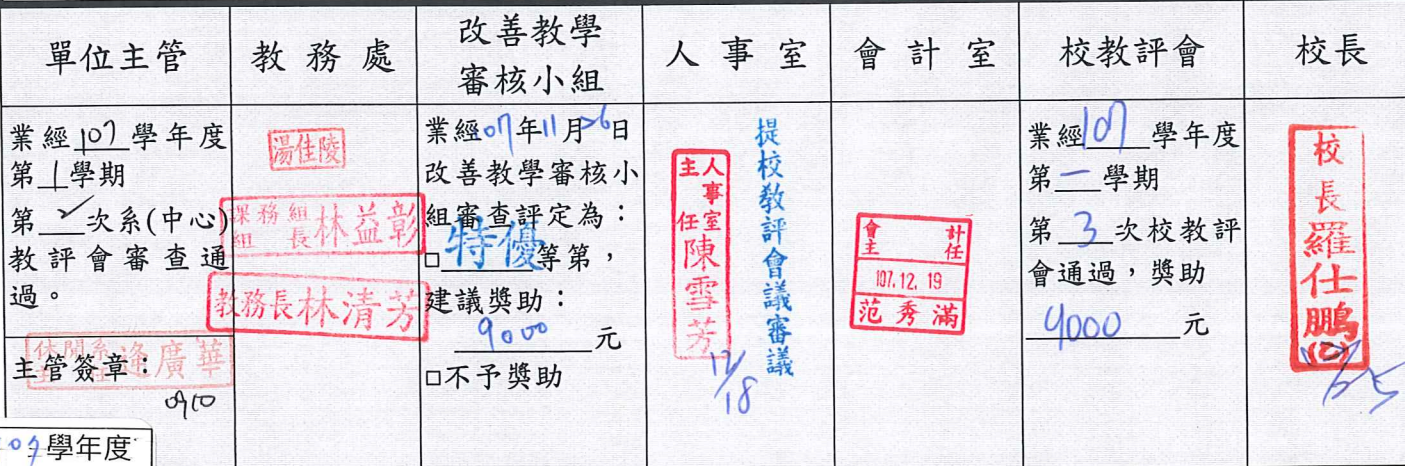 單位主管
教務處
改善教學
審核小組
人事室
會計室
校教評會
校長
業經107學年度
第1學期
第 次系(中心)
教評會審查通
過。
主管簽章：
休閒系
逄廣華
0910
湯佳陵
課務組
組長林益彰
教務長林清芳
業經107年11月26日
改善教學審核小
組審查評定為：
□特優等第，
建議獎助：
9000元
□不予獎助
人事室
主任陳雪芳
12/18
提校教評會議審議
會計
主任
107.12.19
范秀滿
業經107學年度
第一學期
第3次校教評
會通過，獎助
9000元
校長羅仕鵬
學年度